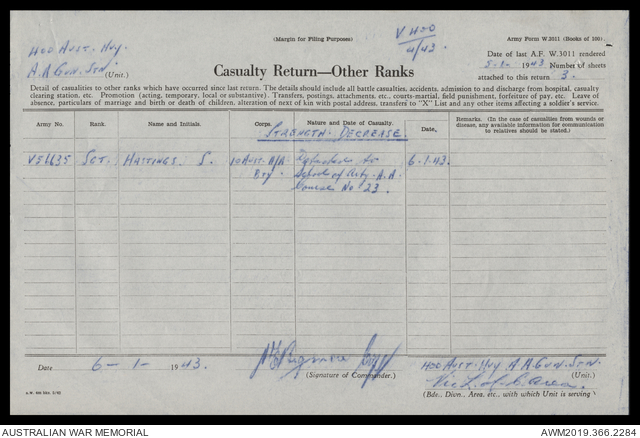 (Margin for Filing Purposes)
V HOO
4/43.
Army Form W.3011 (Books of 100)
HOO AUST. HVY.
A.A GUN. STN. (Unit.)
Date of last A.F. W.3011 rendered
1943 Number of sheets
attached to this return 3.
Casualty Return—Other Ranks
Detail of casualties to other ranks which have occurred since last return. The details should include all battle casualties, accidents, admission to and discharge from hospital, casualty
clearing station, etc. Promotion (acting, temporary, local or substantive). Transfers, postings, attachments, etc., courts-martial, field punishment, forfeiture of pay, etc. Leave of
absence, particulars of marriage and birth or death of children, alteration of next of kin with postal address, transfers to "X" List and any other items affecting a soldier's service.
Army No. Rank. Name and Initials. Corps. Nature and Date of Casualty. Date. Remarks. (In the case of casualties from wounds or
disease, any available information for communication
to relatives should be stated.)
STRENGTH DECREASE.
V51635 SGT. HASTINGS S. 10 AUST. A/A to 6.1.43.
Bty. School of Arty. A.A
Course No 23.
Date 6-1-1943.
(Signature of Commander.)
HOO AUST. HVY A A GUN. STN.
(Unit.)
Vic L of C Area.
(Bde., Divn., Area, etc., with which Unit is serving)
AUSTRALIAN WAR MEMORIAL
AWM2019.366.2284